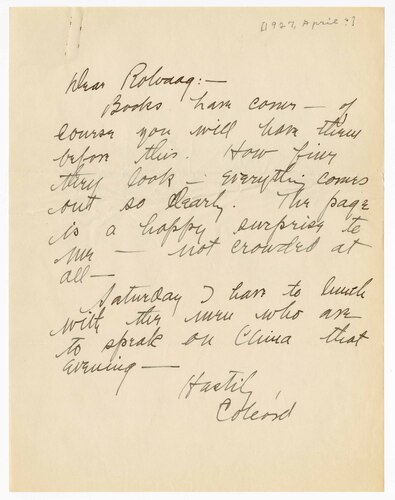 [1927, April?]
Dear Rolvaag:—
Books have come — of
course you will have them
before this. How fine
they look — everything comes
out so clearly. The page
is a happy surprise to
me — not crowded at
all—
Saturday I have to lunch
with the men who are
to speak on China that
evening—
Hastily,
Colcord